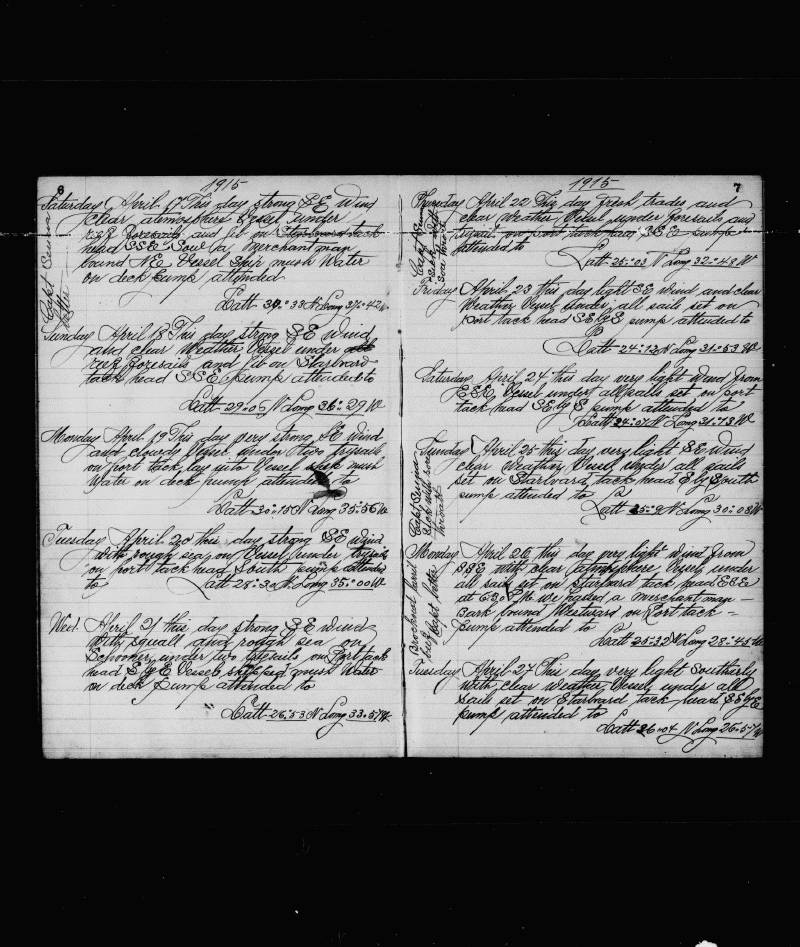 6
1915
Saturday April 17 This day strong SE Wind
clear atmosphere Vessel under
reef Foresails and jib on Starboard tack
head SSE Saw a Merchant man
bound NE Vessel Ship mush Water
on deck Pump attended
Latt 30.° 33 N Long 37.° 42 W
Capt Senna
better
Sunday April 18 This day strong SE Wind
and clear Weather Vessel under
reef Foresails and jib on Starboard
tack head SSE Pump attended to
Latt 29.° 05 N Long 36.° 29 W
Monday April 19 This day very strong SE Wind
and cloudy Vessel under two trysails
on port tack lay into Vessel mush
Water on deck pump attended to
Latt 30.° 15 N Long 35.° 56 W
Tuesday April 20 this day strong SE Wind
with rough sea on Vessel under trysails
on port tack head South pump attended
to Latt 28.° 30 N Long 35.° 00 W
Wed. April 21 this day strong SE Wind
With squall and rough sea on
Schooner under two trysails on Port tack
head S by E Vessel shipped mush Water
on deck Pump attended to
Latt 26.° 53 N Long 33.° 57 W
1915
7
Thursday April 22 This day fresh trades and
clear Weather Vessel under foresails and
trysail on port tack head SSE pump
attended to
Latt 25.° 03 N Long 32.° 48 W
Capt Senna
Sick with
sore throat
Friday April 23 this day light SE Wind and clear
Weather Vessel under all sails set on
port tack head SE by S pump attended to
Latt 24.° 12 N Long 31.° 53 W
Saturday April 24 this day very light Wind from
ESE Vessel under all sails set on port
tack head SE by S pump attended to
Latt 24.° 01 N Long 31.° 13 W
Sunday April 25 this day very light SE Wind
clear Weather Vessel Under all sails
set on Starboard tack head E by South
pump attended to
Latt 25.° 9 N Long 30.° 08 W
Capt Senna
Sick with sore
throat
Monday April 26 this day very light Wind from
SSE with clear atmosphere Vessel under
all sail set on Starboard tack head ESE
at 6.30 PM we passed a merchant man
Bark bound Westward on Port tack
Pump attended to
Latt 25.° 32 N Long 28.° 45 W
Capt better
Tuesday April 27 This day very light Southerly
with clear Weather Vessel under all
Sails set on Starboard tack head SE by E
pump attended to
Latt 26.° 04 N Long 26.° 57 W